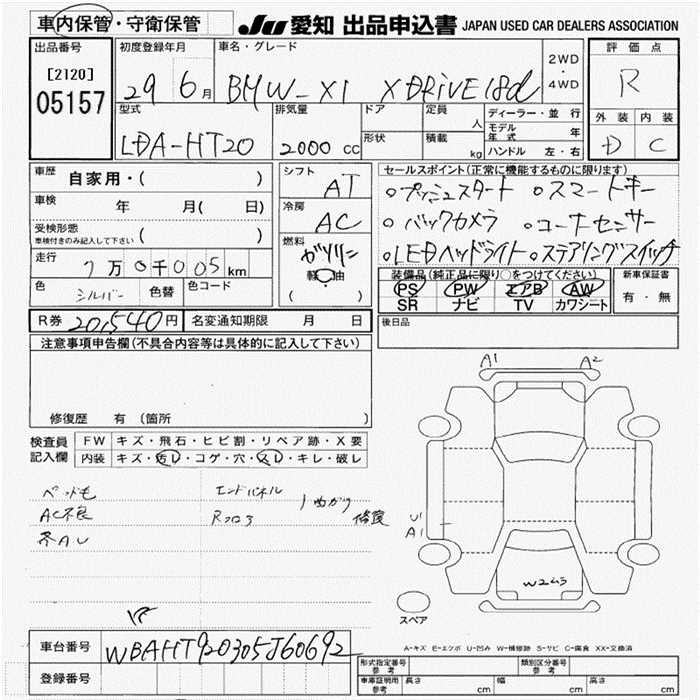 車内保管・守衛保管 JU 愛知 出品申込書 JAPAN USED CAR DEALERS ASSOCIATION
出品番号 初度登録年月 車名・グレード 評価点
[2120] 05157 29 6月 BMW-X1 XDRiVE18d 2WD・4WD R
型式 排気量 ドア 定員 人 ディーラー・並行 外装 内装
LDA-HT20 2000cc 形状 積載 kg モデル年式 年 D C
ハンドル 左・右
車歴 自家用・( ) シフト AT セールスポイント(正常に機能するものに限ります)
車検 年 月( 日) 冷房 AC 。プッシュスタート 。スマートキー
受検形態 車検付きのみ記入して下さい ( ) 。バックカメラ 。コーナーセンサー
走行 7万0千005km 燃料 ガソリン 軽油 ( ) 。LEDヘッドライト 。ステアリングスイッチ
色 シルバー 色替 色コード 装備品(純正品に限り○をつけてください) 新車保証書
PS PW エアB AW 有・無
SR ナビ TV カワシート
R券 20,540円 名変通知期限 月 日 後日品
注意事項申告欄(不具合内容等は具体的に記入して下さい)
修復歴 有 (箇所 )
A1 A2
検査員記入欄 FW キズ・飛石・ヒビ割・リペア跡・X要
内装 キズ・汚レ・コゲ・穴・スレ・キレ・破レ
ペット毛 エンドパネル
AC不良 Rフロア 修復
U1
A1
W2ムラ
スペア
A-キズ E-エクボ U-凹み W-補修跡 S-サビ C-腐食 XX-交換済
車台番号 WBAHT920305J60692
登録番号
形式指定番号 参考 類別区分番号 参考
車庫証明用 参考 長さ cm 幅 cm 高さ cm